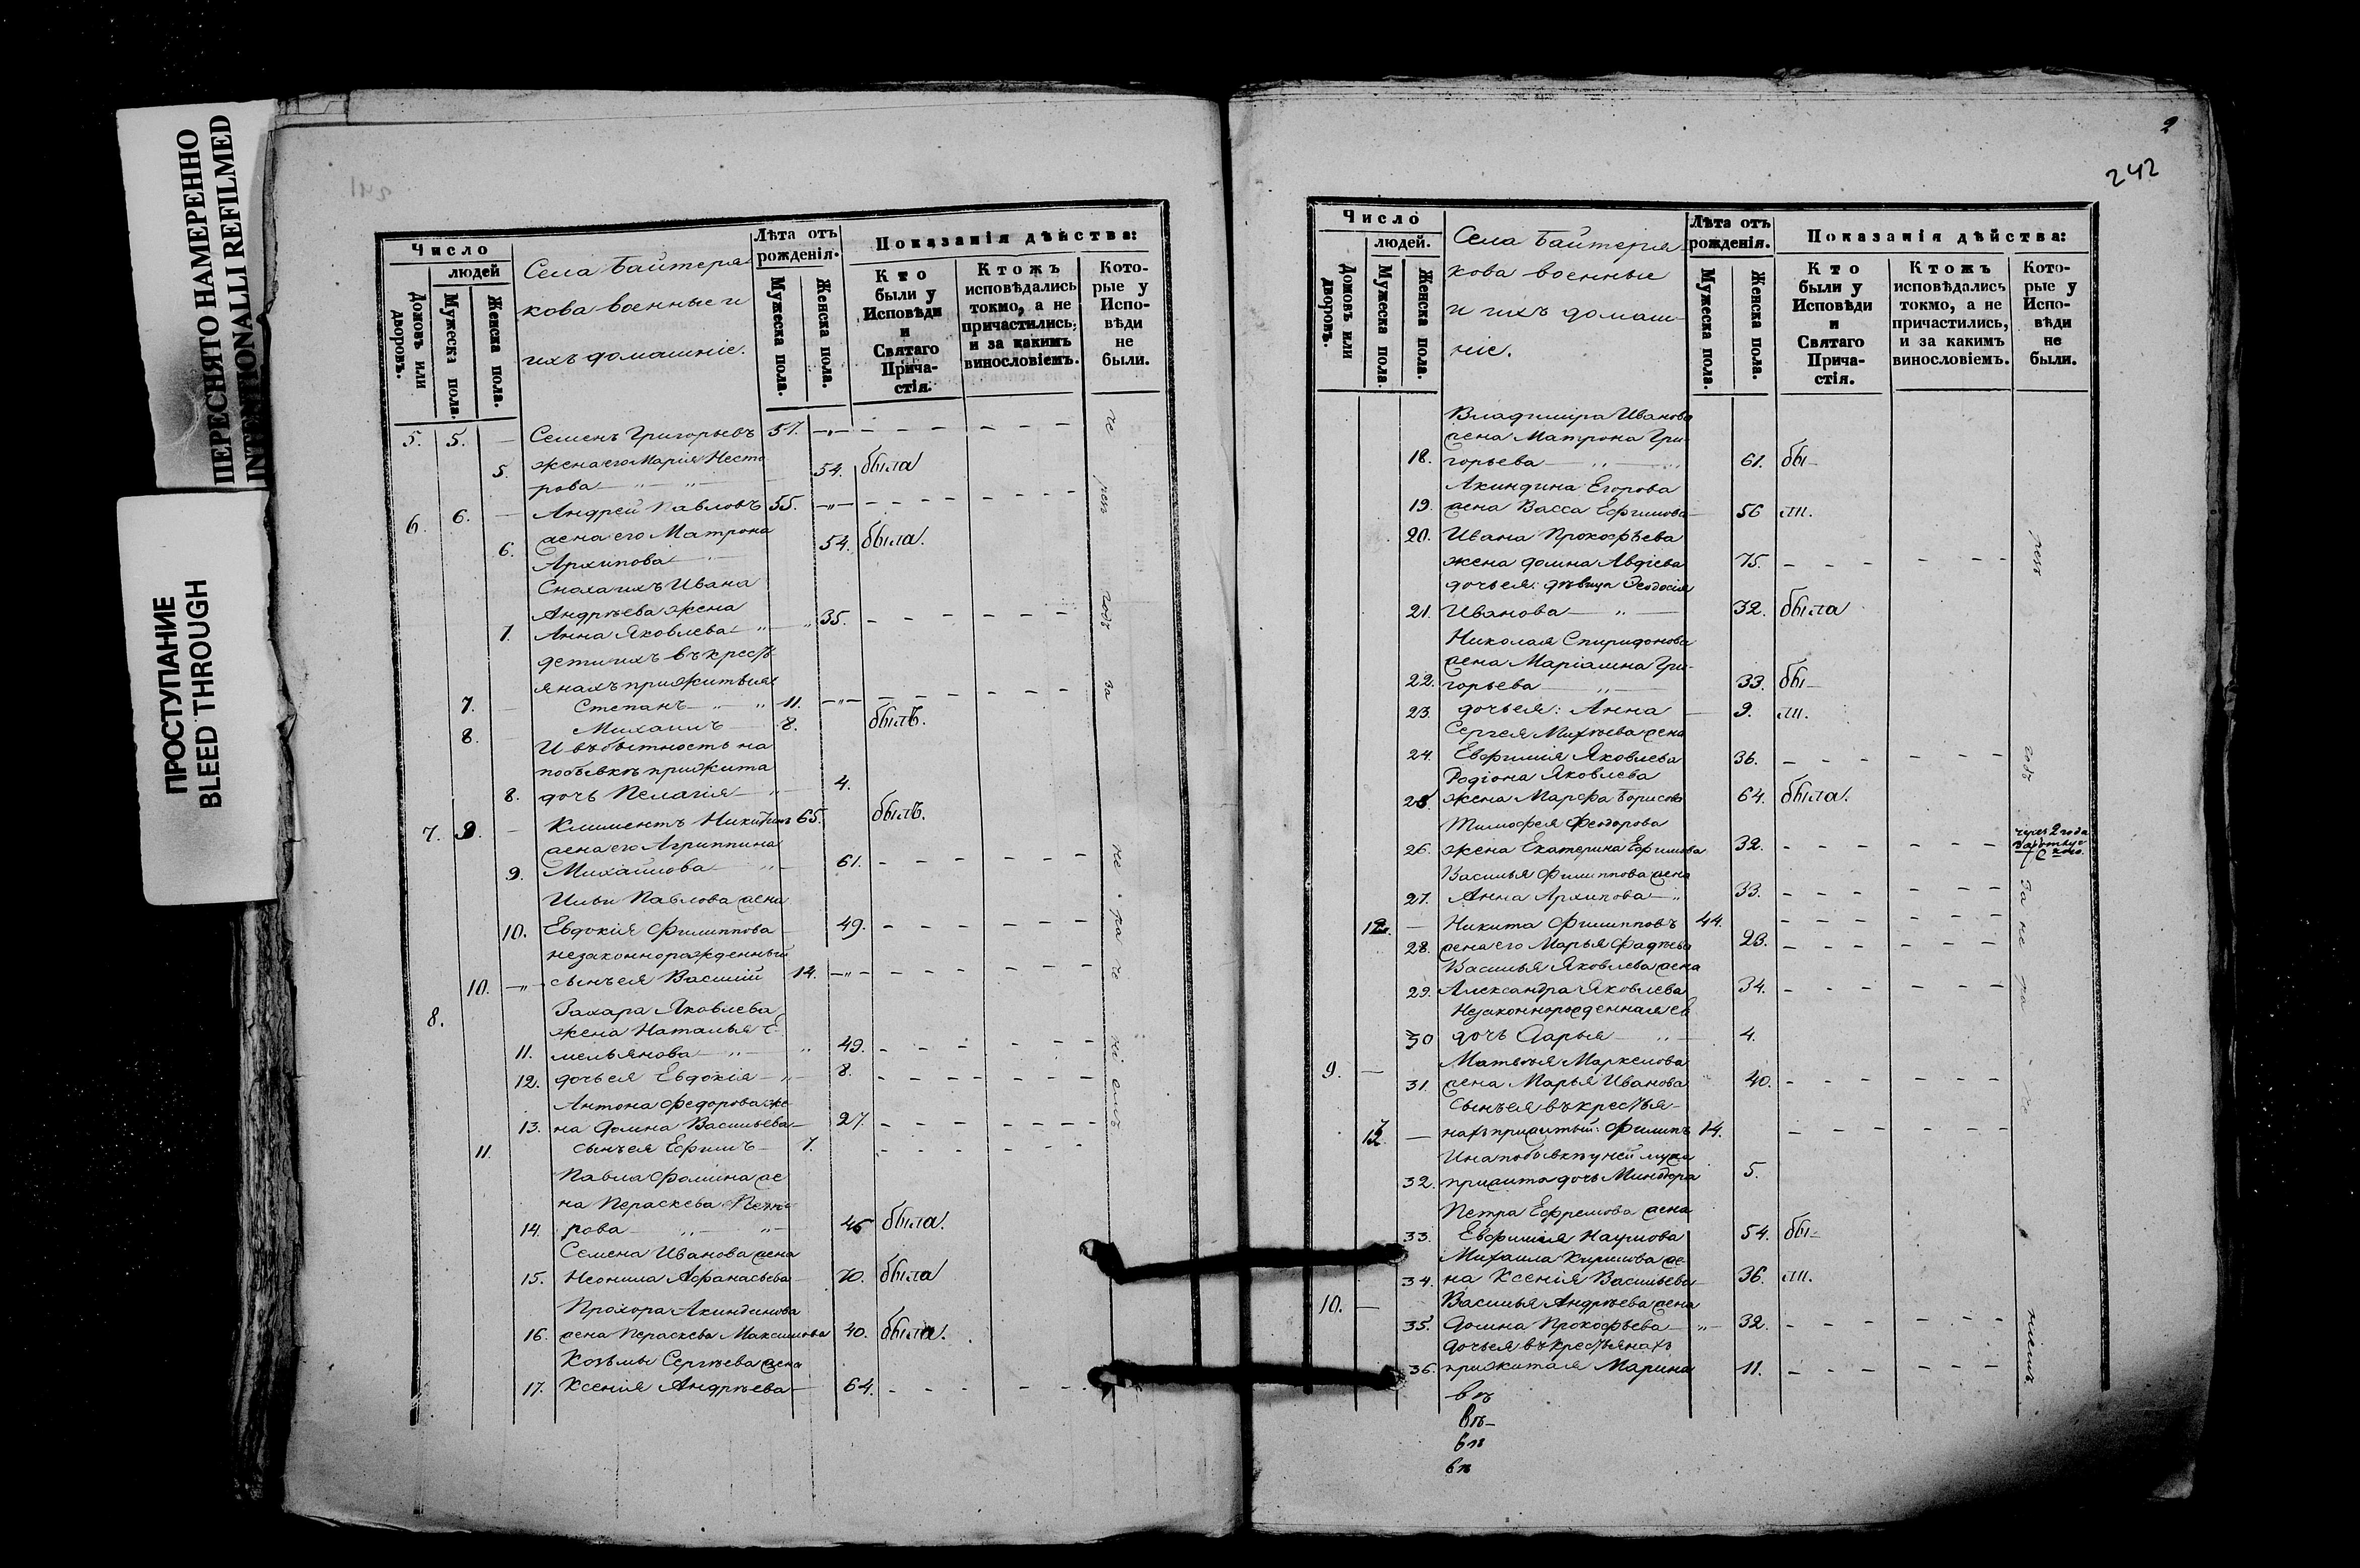 ПЕРЕСНЯТО НАМЕРЕННО
INTENTIONALLI REFILMED
ПРОСТУПАНИЕ
BLEED THROUGH
Число
людей
Домовъ или дворовъ.
Мужеска пола.
Женска пола.
Села Байтеря-
кова военные и
ихъ домашніе.
Лѣта отъ рожденія.
Мужеска пола.
Женска пола.
Показанія дѣйства:
Кто были у Исповѣди и Святаго Прича-стія.
Ктожъ исповѣдались токмо, а не причастились, и за какимъ винословіемъ.
Кото-рые у Испо-вѣди не были.
5. 5. — Семенъ Григорьевъ 57.
жена его Марія Несто
5. рова 54. была
6. 6. — Андрей Павловъ 55.
жена его Матрона
6. Архипова 54. была.
Сноха ихъ Ивана
Андрѣева жена
7. Анна Яковлева 35.
дети ихъ въ кресть
янахъ прижитыя
7. Степанъ 11.
8. Михаилъ 8. былъ.
И въ бытность на
побывкѣ прижита
8. дочь Пелагія 4.
7. 9. — Климентъ Никитинъ 65. былъ.
жена его Агриппина
9. Михайлова 61.
Ильи Павлова жена
10. Евдокія Филиппова 49.
незаконнорожденный
10. сынъ ея Василій 14.
8. Захара Яковлева
жена Наталья Е
11. мельянова 49.
12. дочь ея Евдокія 8.
Антона Федорова же
13. на Домна Васильева 27.
11. сынъ ея Ефимъ 7.
Павла Фомина же
на Параскева Пет
14. рова 46 была.
Семена Иванова жена
15. Неонила Афанасьева 70. была
Прохора Акиндинова
16. жена Параскева Максимова 40. была.
Козьмы Сергѣева жена
17. Ксенія Андрѣева 64.
2
242
Число
людей.
Домовъ или дворовъ.
Мужеска пола.
Женска пола.
Села Байтеря-
кова военные
и ихъ домаш-
ніе.
Лѣта отъ рожденія.
Мужеска пола.
Женска пола.
Показанія дѣйства:
Кто были у Исповѣди и Святаго Прича-стія.
Ктожъ исповѣдались токмо, а не причастились, и за какимъ винословіемъ.
Кото-рые у Испо-вѣди не были.
Владиміра Иванова
жена Матрона Гри-
18. горьева 61. бы-
Акиндина Егорова
19. жена Васса Ефимова 56 ли.
20. Ивана Прокофьева
жена Домна Авдіева 75.
дочь ея: дѣвица Ѳеодосія
21. Иванова 32. была
Николая Спиридонова
жена Маріамна Гри-
22. горьева 33. бы-
23. дочь ея: Анна 9. ли.
Сергея Михѣева жена
24. Евфимія Яковлева 36.
Родіона Яковлева
25. жена Марфа Борисова 64. была.
Тимофея Феодорова
26. жена Екатерина Ефимова 32.
Василья Филиппова жена
27. Анна Архипова 33.
12. — Никита Филипповъ 44.
28. жена его Марья Фадѣева 23.
Василья Яковлева жена
29. Александра Яковлева 34.
Незаконнорожденная ея
30 дочь Дарья 4.
9. — Матвѣя Маркелова
31. жена Марья Иванова 40.
Сынъ ея въ крестья-
13. — нахъ прижитый: Филипъ 14.
И на побывкѣ у ней мужа
32. прижита дочь Минодора 5.
Петра Ефремова жена
33. Евфимія Наумова 54. бы-
Михаила Кирилова же-
34. на Ксенія Васильева 36. ли.
10. — Василья Андрѣева жена
35. Домна Прокофьева 32.
дочь ея въ крестьянахъ
36. прижитая Марина 11.